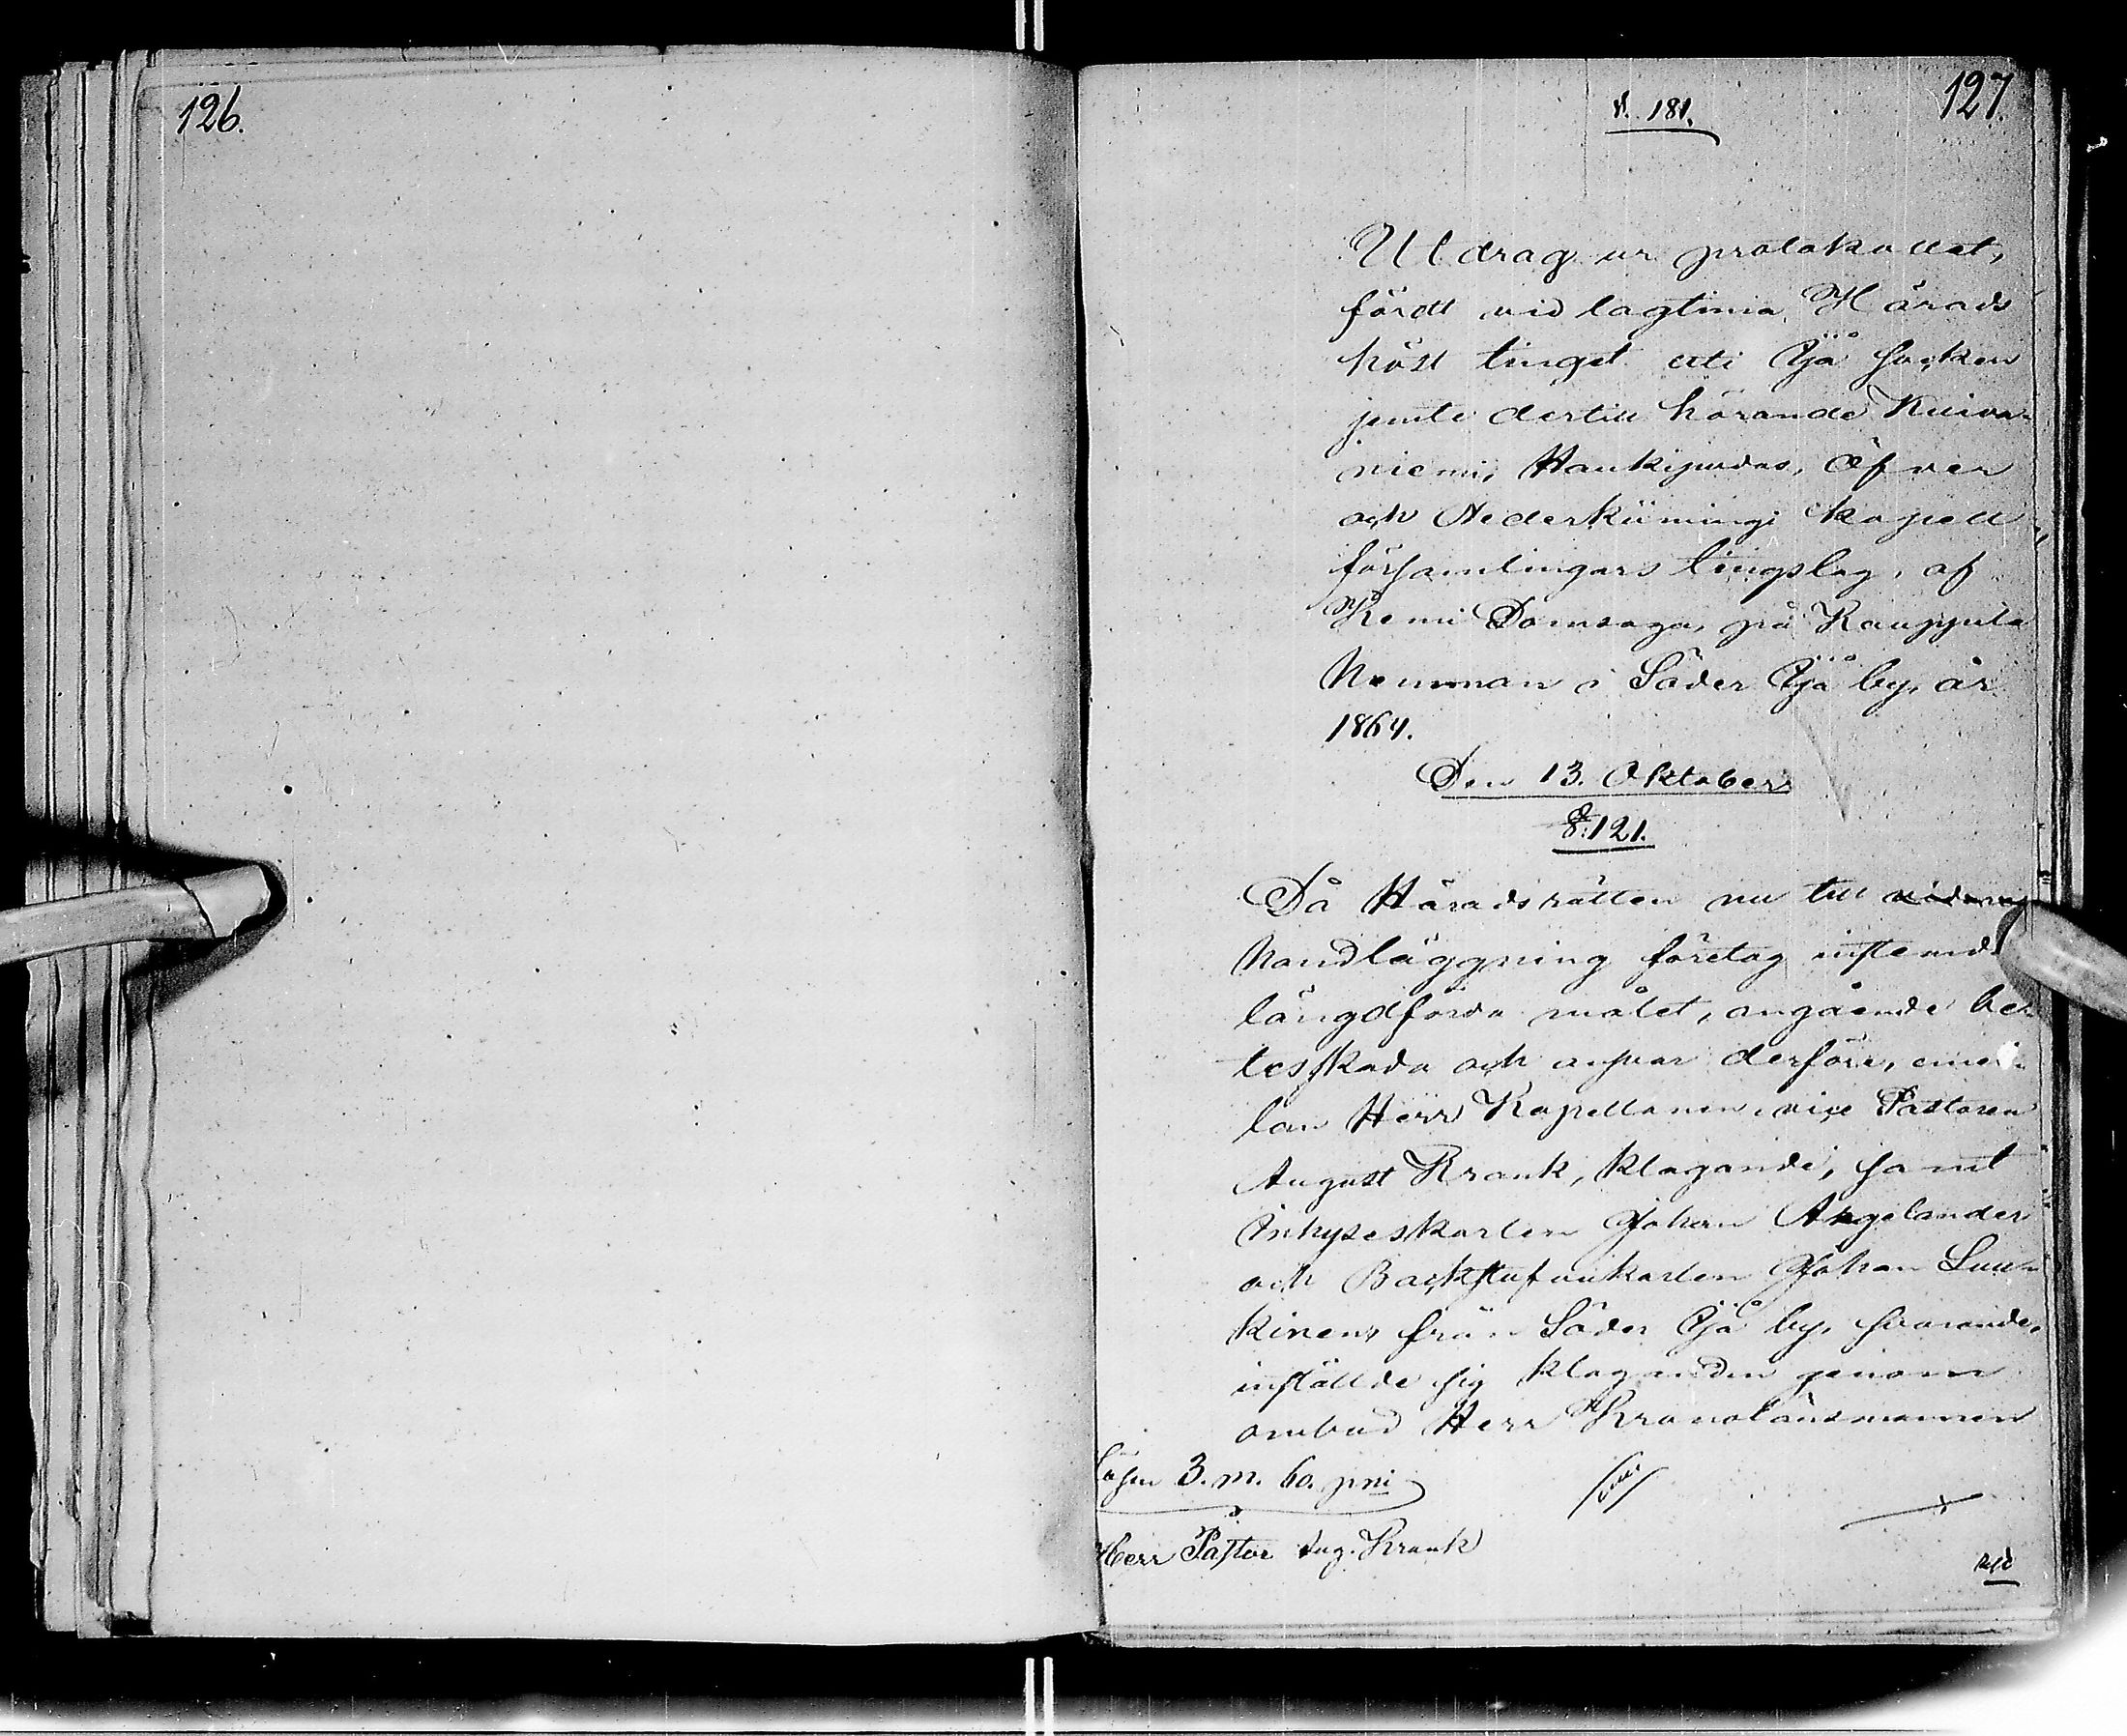 126.
127.
d. 181.
Utdrag ur protokollet,
fördt vid lagtima Härads
höst tinget uti Ijå socken
jemte dertill hörande Kuiva-
niemi, Haukipudas, Öfver
och Nederkiimingi kapell-
församlingars tingslag, af
Kemi Domsaga, på Kauppila
Hemman i Söder Ijå by, år
1864.
Den 13. Oktober
§. 121.
Då Häradsrätten nu till
handläggning företog instemda
längdförda målet, angående be-
tesskada och ansvar derföre, emel-
lan Herr Kapellanen, vice Pastoren
August Krank, klagande, samt
inhyseskarlen Johan Angelander
och Backstufvukarlen Johan Luu-
kinen, från Söder Ijå by, svarande,
inställde sig klaganden genom
ombud Herr Kronolänsmannen
Lösen 3. m. 60. pni
Herr Pastor Aug. Krank